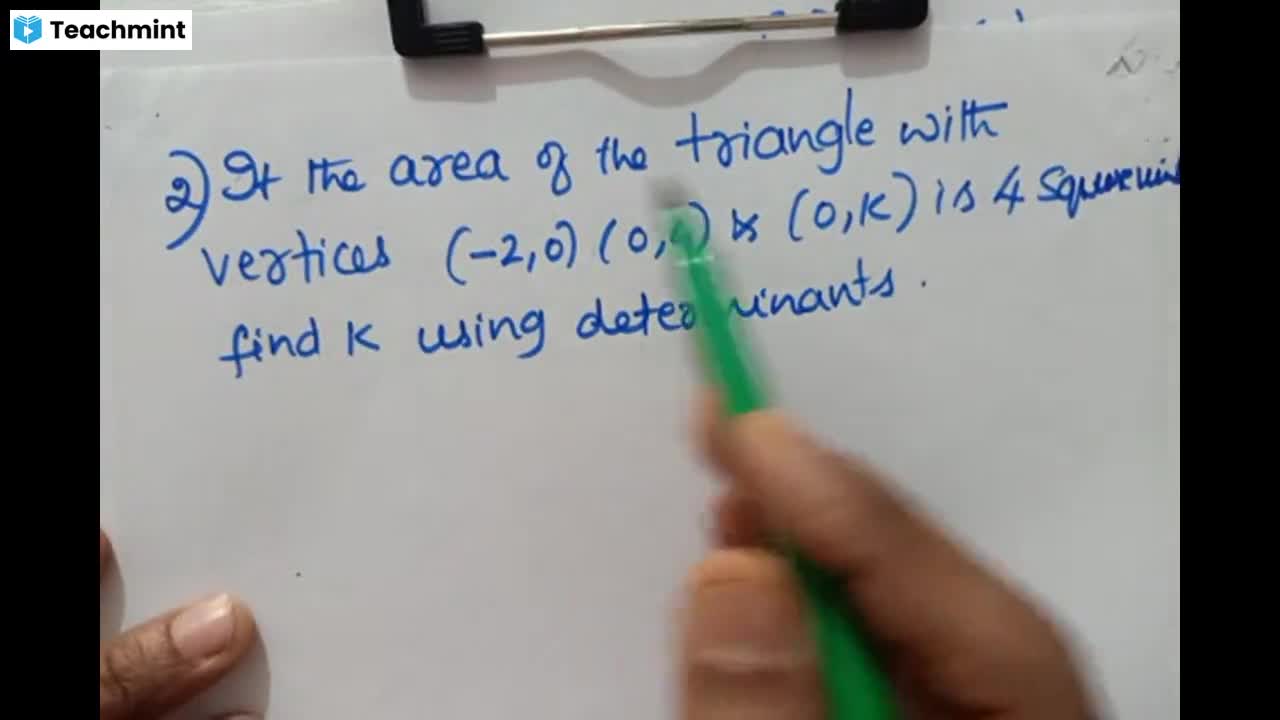 Teachmint
2) If the area of the triangle with
vertices (-2,0) (0,4) & (0,K) is 4 square
find K using determinants.